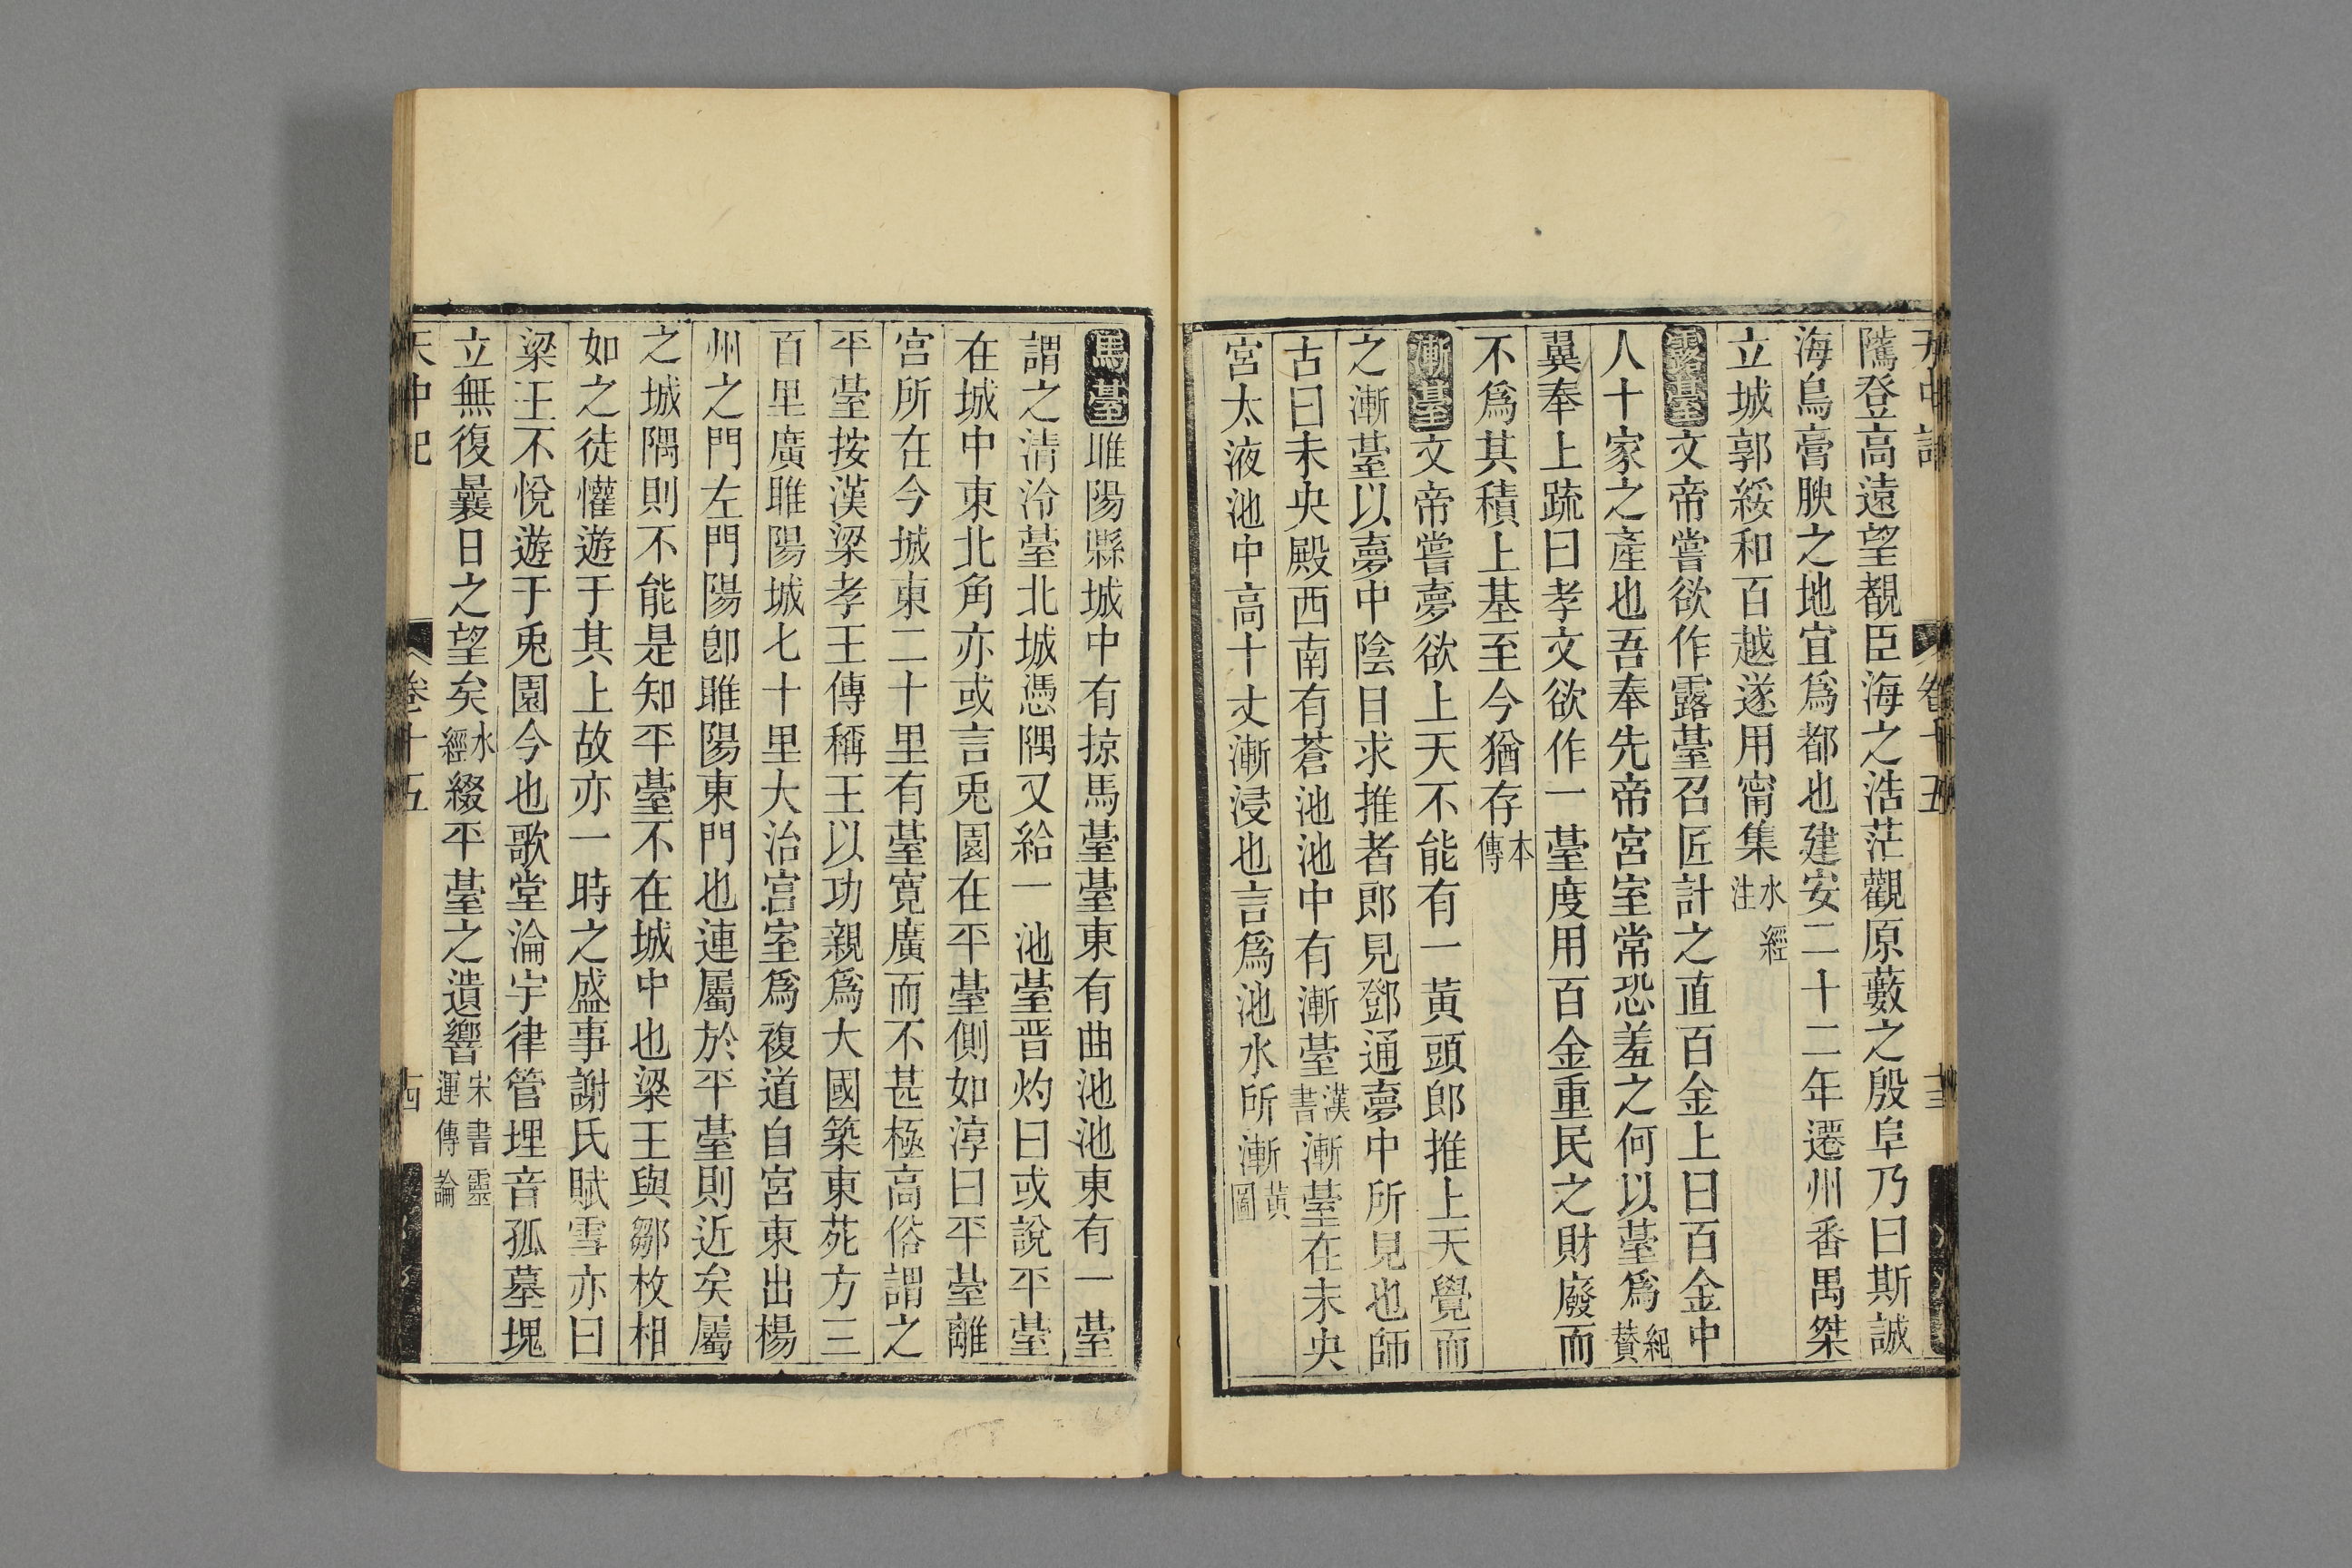 天中記 卷十五 十三
隲登高遠望覩臣海之浩茫觀原藪之殷阜乃曰斯誠
海鳥膏腴之地宜爲都也建安二十二年遷州番禺桀
立城郭綏和百越遂用甯集水經注
露臺文帝嘗欲作露臺召匠計之直百金上曰百金中
人十家之產也吾奉先帝宮室常恐羞之何以臺爲紀贊
翼奉上䟽曰孝文欲作一臺度用百金重民之財廢而
不爲其積上基至今猶存本傳
漸臺文帝嘗夢欲上天不能有一黃頭郎推上天覺而
之漸臺以夢中陰目求推者郎見鄧通夢中所見也師
古曰未央殿西南有蒼池池中有漸臺漢書漸臺在未央
宮太液池中高十丈漸浸也言爲池水所漸黃圖
馬臺睢陽縣城中有掠馬臺臺東有曲池池東有一臺
謂之清泠臺北城憑隅又給一池臺晋灼曰或說平臺
在城中東北角亦或言兎園在平臺側如淳曰平臺離
宮所在今城東二十里有臺寬廣而不甚極高俗謂之
平臺按漢梁孝王傳稱王以功親爲大國築東苑方三
百里廣睢陽城七十里大治宮室爲複道自宮東出楊
州之門左門陽卽睢陽東門也連屬於平臺則近矣屬
之城隅則不能是知平臺不在城中也梁王與鄒枚相
如之徒懽遊于其上故亦一時之盛事謝氏賦雪亦曰
梁王不悅遊于兎園今也歌堂淪宇律管埋音孤墓塊
立無復曩日之望矣水經綴平臺之遺響宋書靈運傳論
天中記 卷十五 十四